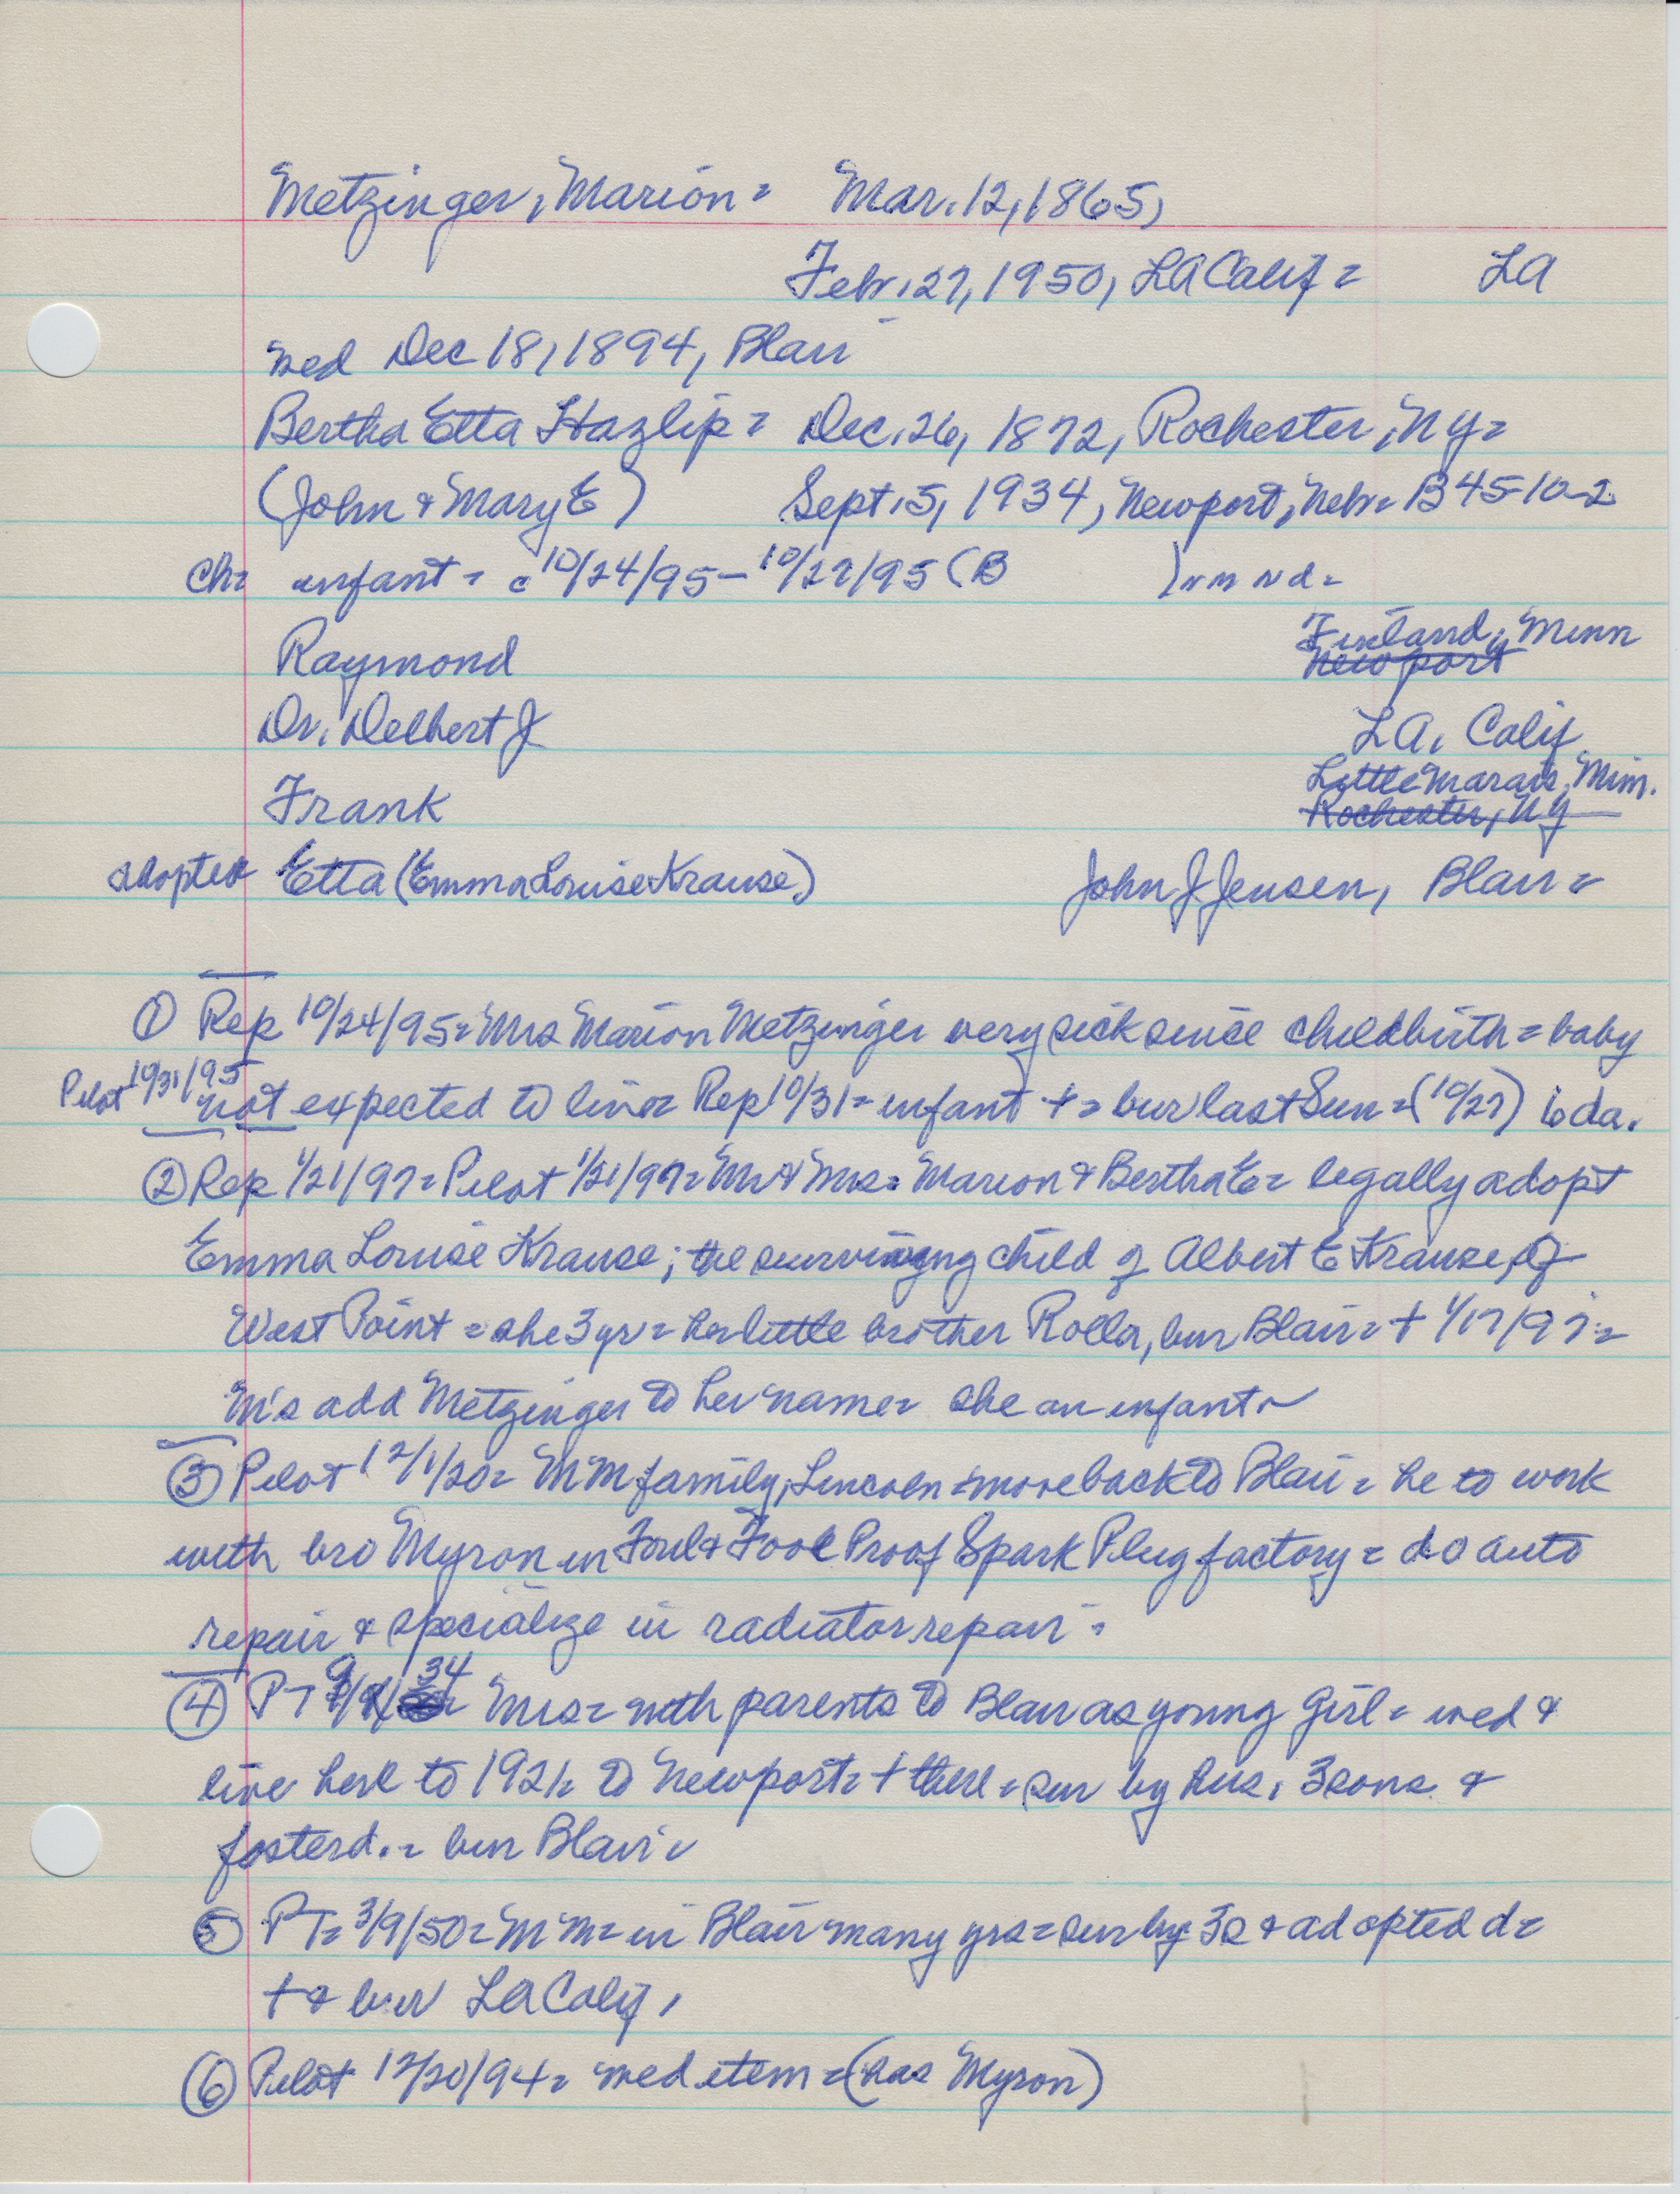 Metzinger, Marion = Mar. 12, 1865,
Febr. 27, 1950, LA Calif = LA
wed Dec 18, 1894, Blair
Bertha Etta Hazlip = Dec. 26, 1872, Rochester, NY =
(John & Mary E) Sept. 5, 1934, Newport, Nebr = B 45-10-2
ch = infant = c 10/24/95 - 10/27/95 (B ) nm nd =
Finland, Minn
Raymond Newport
Dr. Delbert J LA, Calif
Little Marais, Minn.
Frank Rochester, NY
adopted Etta (Emma Louise Krause) John J Jensen, Blair =
① Rep 10/24/95 = Mrs Marion Metzinger very sick since childbirth = baby
Pilot 10/31/95 not expected to live = Rep 10/31 = infant + = bur last Sun = (10/27) 6 da.
② Rep 1/21/97 = Pilot 1/21/97 = Mr & Mrs = Marion & Bertha E = legally adopt
Emma Louise Krause; the surviving child of Albert E Krause, of
West Point = she 3 yr = her little brother Rolla, bur Blair = + 1/17/97 =
M's add Metzinger to her name = she an infant
③ Pilot 12/1/20 = MM family, Lincoln = move back to Blair = he to work
with bro Myron in Foul & Fool Proof Spark Plug factory = do auto
repair & specialize in radiator repair =
④ PT 9/ /34 Mrs = with parents to Blair as young girl = wed &
live here to 1921 = to Newport = + there = sur by hus, 3 sons &
foster d. = bur Blair =
⑤ PT = 3/9/50 = MM = in Blair many yrs = sur by 3s & adopted d =
+ & bur LA Calif,
⑥ Pilot 12/20/94 = wed item = (has Myron)